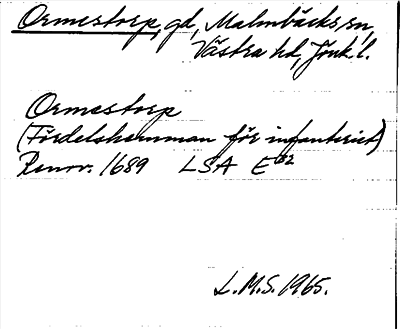 Ormestorp, gd, Malmbäcks sn,
Västra hd, Jönk. l.
Ormestorp
(Fördelshemman för infanteriet)
Renov. 1689 LSA E
L.M.S. 1965.